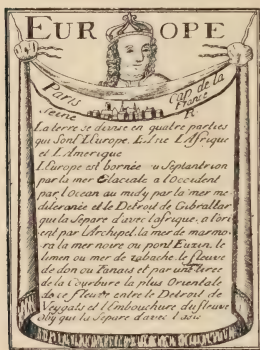 EUROPE
Paris Cap. de la
Seine France R
La terre se divise en quatre parties
qui sont L'Europe. L'Asie L'Afrique
et L'Amerique
L'Europe est bornée u Septantrion
par la mer Glaciale a l'Occident
par l'Ocean au midy par la mer me
diteranée et le Detroit de Gibraltar
qui la Separe d'avec l'afrique, a l'ori
ent par l'Archipel. la mer de marmo
ra la mer noire ou pont Euxin, le
limen ou mer de zabache, le fleuve
de don ou Tanais et par une tirée
de la Courbure la plus Orientale
de ce fleuve entre le Detroit de
Veygats et l'Embouchure du fleuve
Oby qui la Separe d'avec l'asie